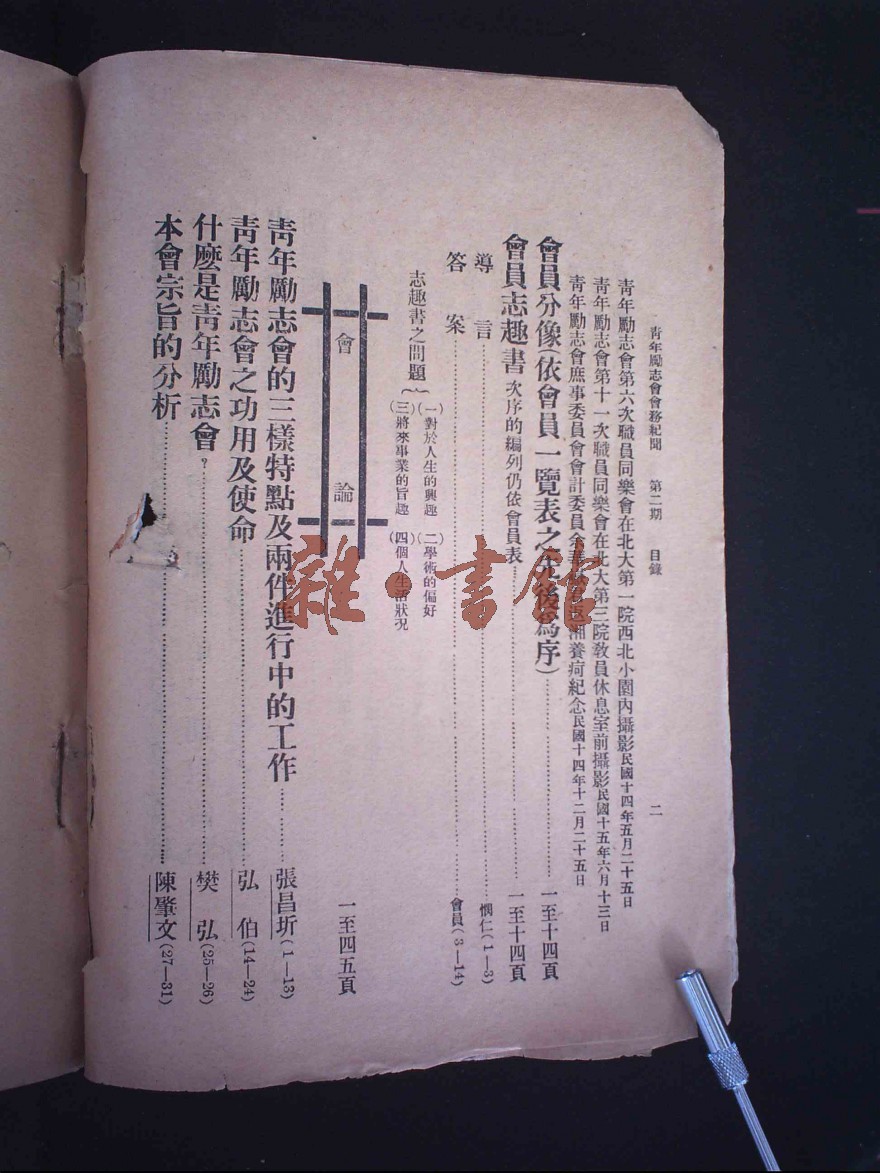 青年勵志會會務紀聞　第二期　目錄　二
青年勵志會第六次職員同樂會在北大第一院西北小園內攝影民國十四年五月二十五日
青年勵志會第十一次職員同樂會在北大第三院教員休息室前攝影民國十五年六月十三日
青年勵志會庶事委員會會計委員余返湘養疴紀念民國十四年十二月二十五日
會員分像(依會員一覽表之先後為序)……一至十四頁
會員志趣書 次序的編列仍依會員表……一至十四頁
導言……惘仁(1—3)
答案……會員(3—14)
志趣書之問題
(一)對於人生的興趣 (二)學術的偏好
(三)將來事業的旨趣 (四)個人生活狀况
會論 一至四五頁
青年勵志會的三樣特點及兩件進行中的工作……張昌圻(1—13)
青年勵志會之功用及使命……弘伯(14—24)
什麼是青年勵志會?……樊弘(25—26)
本會宗旨的分析……陳肇文(27—31)
雜·書館